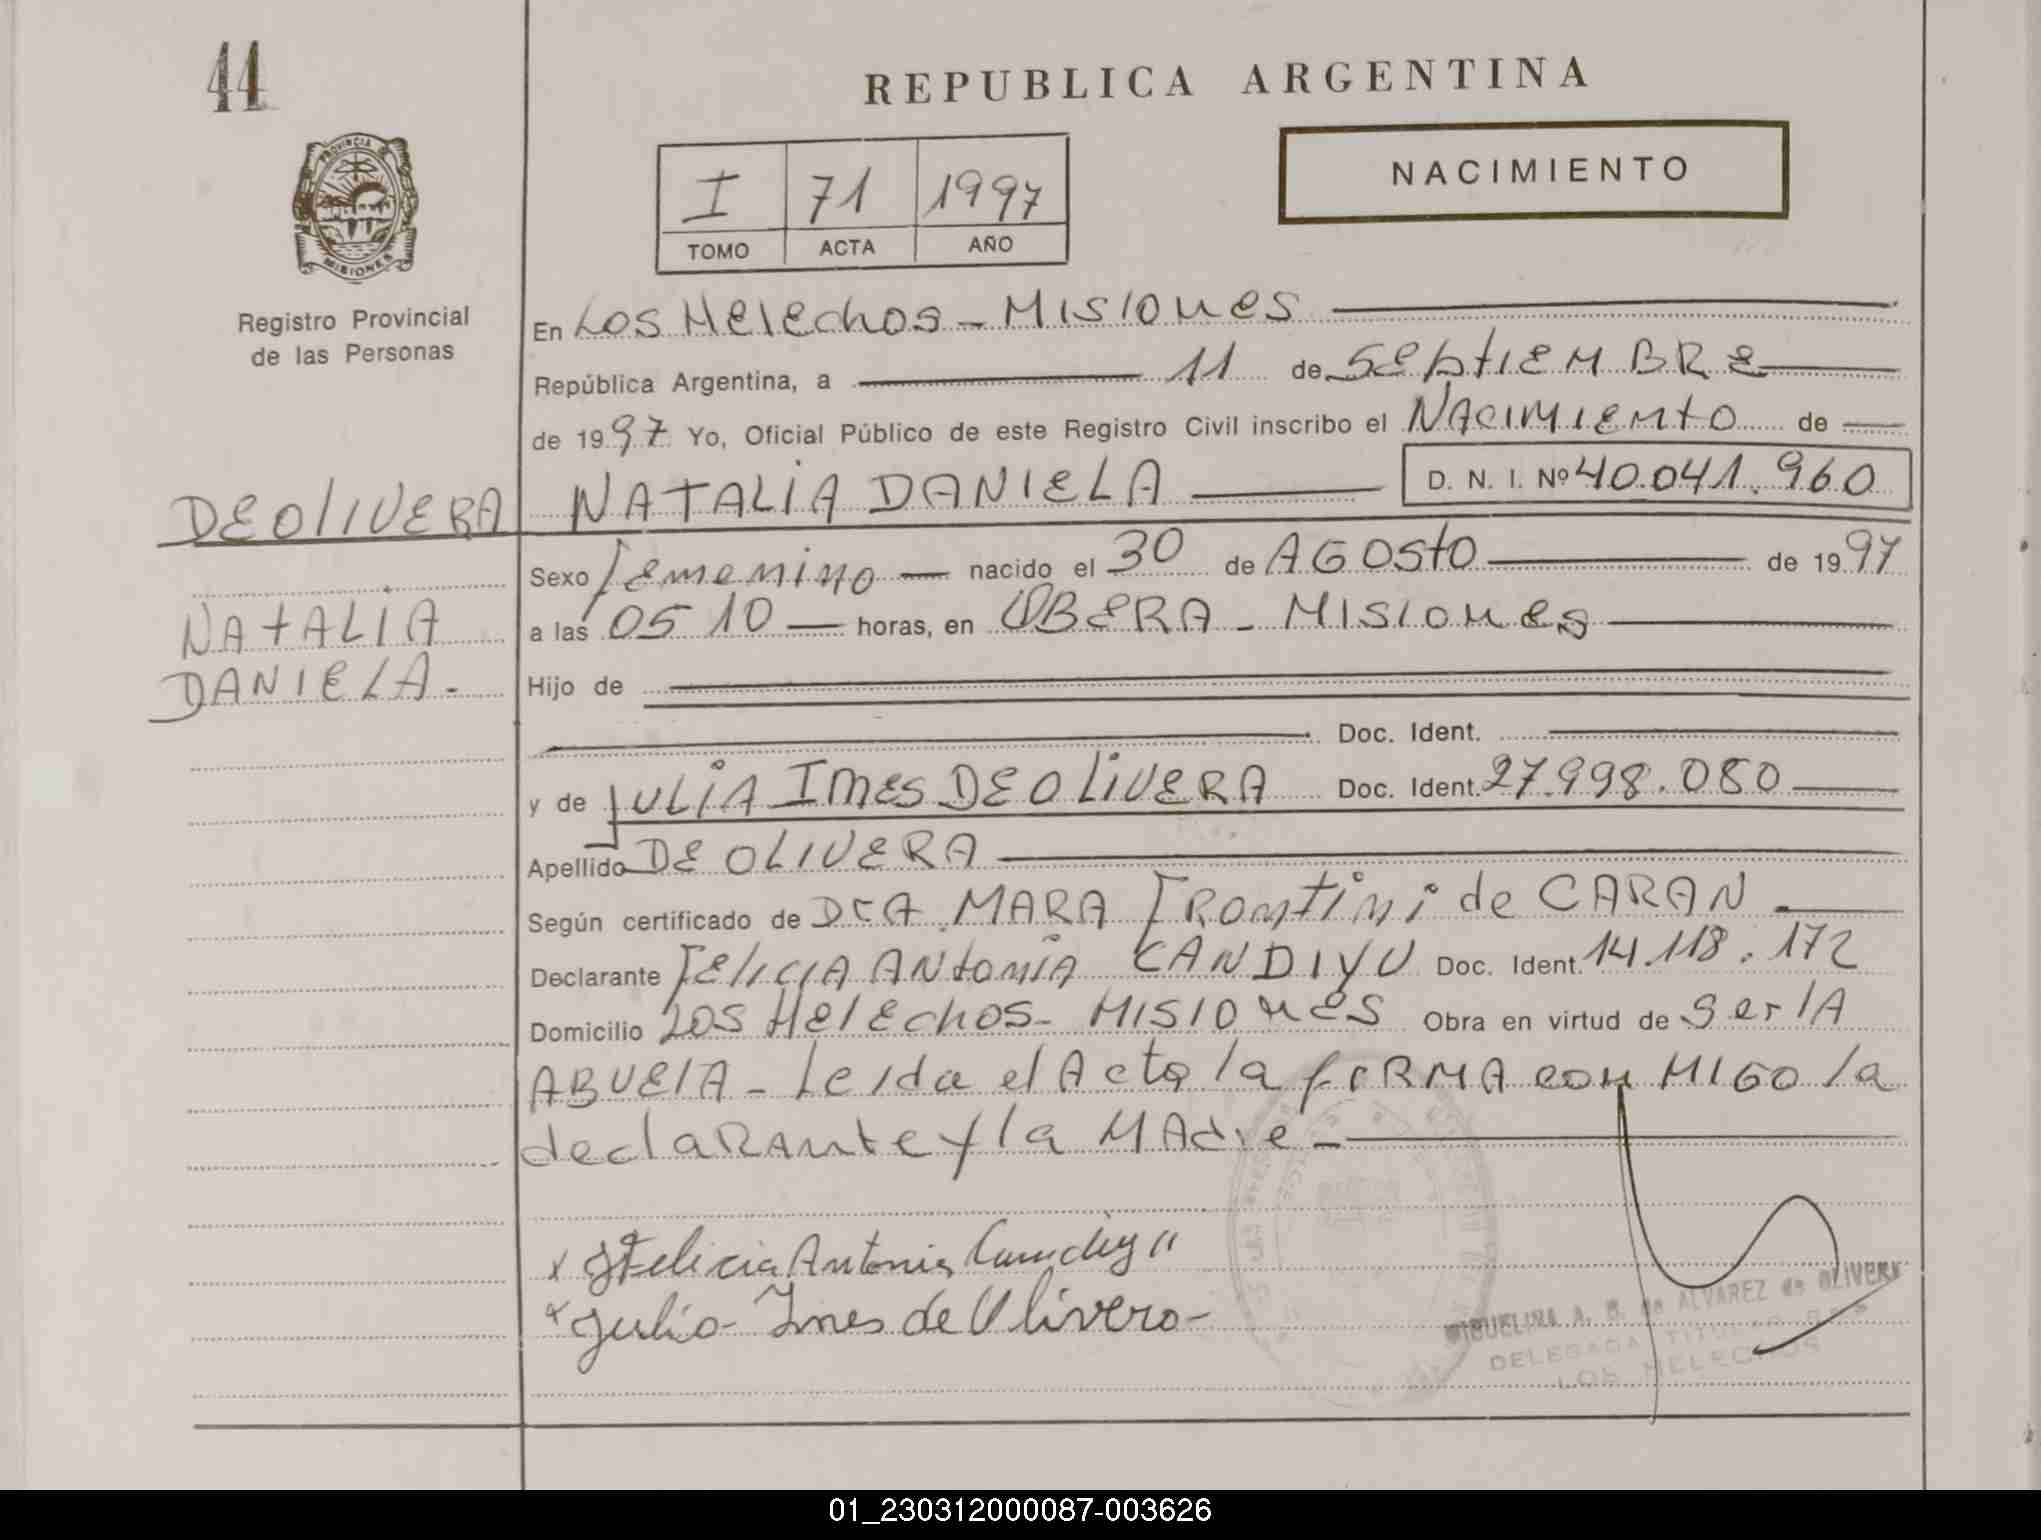 44
REPUBLICA ARGENTINA
PROVINCIA DE
MISIONES
I 71 1997
TOMO ACTA AÑO
NACIMIENTO
Registro Provincial
de las Personas
En Los Helechos - Misiones
República Argentina, a 11 de SEptiEMBRE
de 1997 Yo, Oficial Público de este Registro Civil inscribo el NAcimiento de
DEOlIVERA NATALiA DANIELA D. N. I. Nº 40.041.960
Sexo femenino nacido el 30 de AGOSto de 1997
a las 05 10 horas, en OBERA - MISIONES
NAtALIA
DANIELA.
Hijo de
Doc. Ident.
y de JULiA INES DEOLiVERA Doc. Ident. 27.998.080
Apellido DE OLIVERA
Según certificado de DrA. MARA Frontini de CARAN
Declarante FElICIA ANtoniA CANDIYU Doc. Ident. 14.118.172
Domicilio Los HElEchos - MISIONES Obra en virtud de ser lA
ABUElA - Leida el Acta la fiRMA con MIGO la
declaRAnte y la MAdre -
x Felicia Antonia
x Julia Ines de Olivera -
MIGUELINA A. B. de ALVAREZ de OLIVERA
DELEGADA TITULAR
LOS HELECHOS
01_230312000087-003626